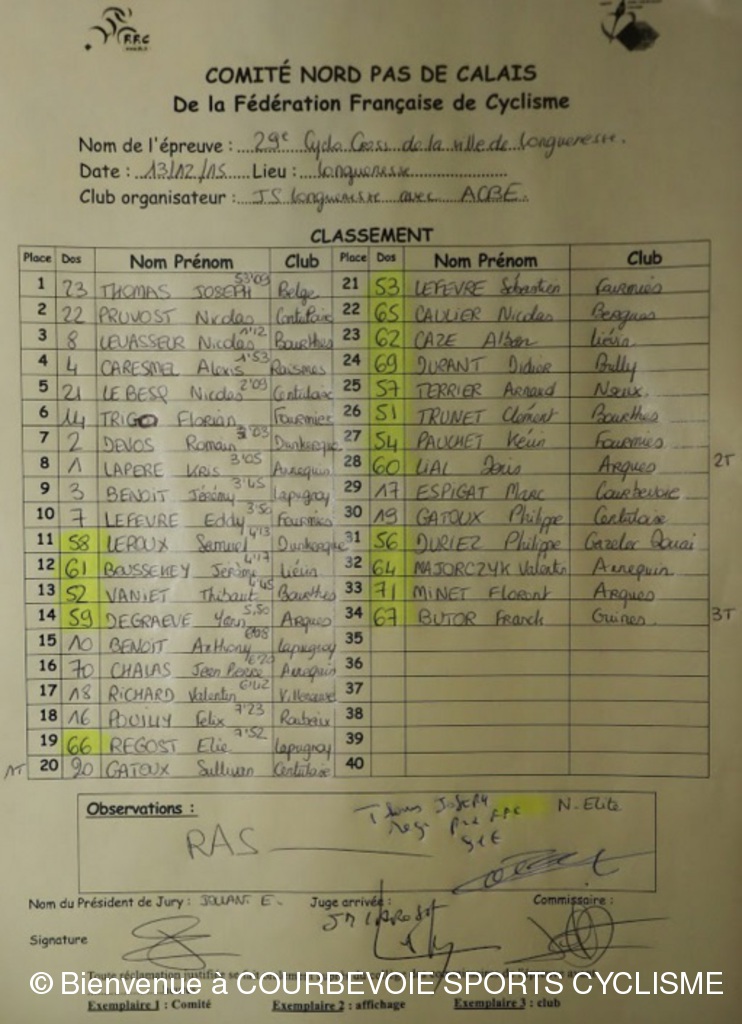 F.F.C
COMITÉ NORD PAS DE CALAIS
De la Fédération Française de Cyclisme
Nom de l'épreuve : 29e Cyclo Cross de la ville de Longuenesse.
Date : 13/12/15 Lieu : Longuenesse
Club organisateur : JS Longuenesse avec ACBE.
CLASSEMENT
Place Dos Nom Prénom Club Place Dos Nom Prénom Club
1 23 THOMAS JOSEPH 53'09 Belge 21 53 LEFEVRE Sébastien Fourmies
2 22 PRUVOST Nicolas 22 65 CAULIER Nicolas Bergues
3 8 LEVASSEUR Nicolas 1'12 Bourthes 23 62 CAZE Alban Liévin
4 4 CARESMEL Alexis 1'53 Raismes 24 69 DURANT Didier Bully
5 21 LE BESQ Nicolas 2'09 Centuloise 25 57 TERRIER Arnaud Noeux
6 14 TRIGO Florian Fourmies 26 51 TRUNET Clément Bourthes
7 2 DEVOS Romain 3'03 Dunkerque 27 54 PAUCHET Kévin Fourmies
8 1 LAPERE Kris 3'05 Annequin 28 60 LIAL Arques 2T
9 3 BENOIT Jérémy 3'45 Lapugnoy 29 17 ESPIGAT Marc Courbevoie
10 7 LEFEVRE Eddy 3'50 Fourmies 30 19 GATOUX Philippe Centuloise
11 58 LEROUX Samuel 4'13 Dunkerque 31 56 DURIEZ Philippe Gazelec Douai
12 61 BOUSSEKEY Jérôme 4'17 Liévin 32 64 MAJORCZYK Valentin Annequin
13 52 VANIET Thibaut 4'45 Bourthes 33 71 MINET Florent Arques
14 59 DEGRAEVE Yann 5.50 Arques 34 67 BUTOR Franck Guines 3T
15 10 BENOIT Anthony 6'08 Lapugnoy 35
16 70 CHALAS Jean Pierre Annequin 36
17 18 RICHARD Valentin 6'42 37
18 16 POUILLY Felix 7'23 Roubaix 38
19 66 REGOST Elie 7'52 Lapugnoy 39
1T 20 20 GATOUX Sullivan Centuloise 40
Observations : Thomas Joseph N. Elite
RAS
Nom du Président de Jury : JOLIANT E. Juge arrivée : Commissaire :
Signature
© Bienvenue à COURBEVOIE SPORTS CYCLISME
Exemplaire 1 : Comité Exemplaire 2 : affichage Exemplaire 3 : club